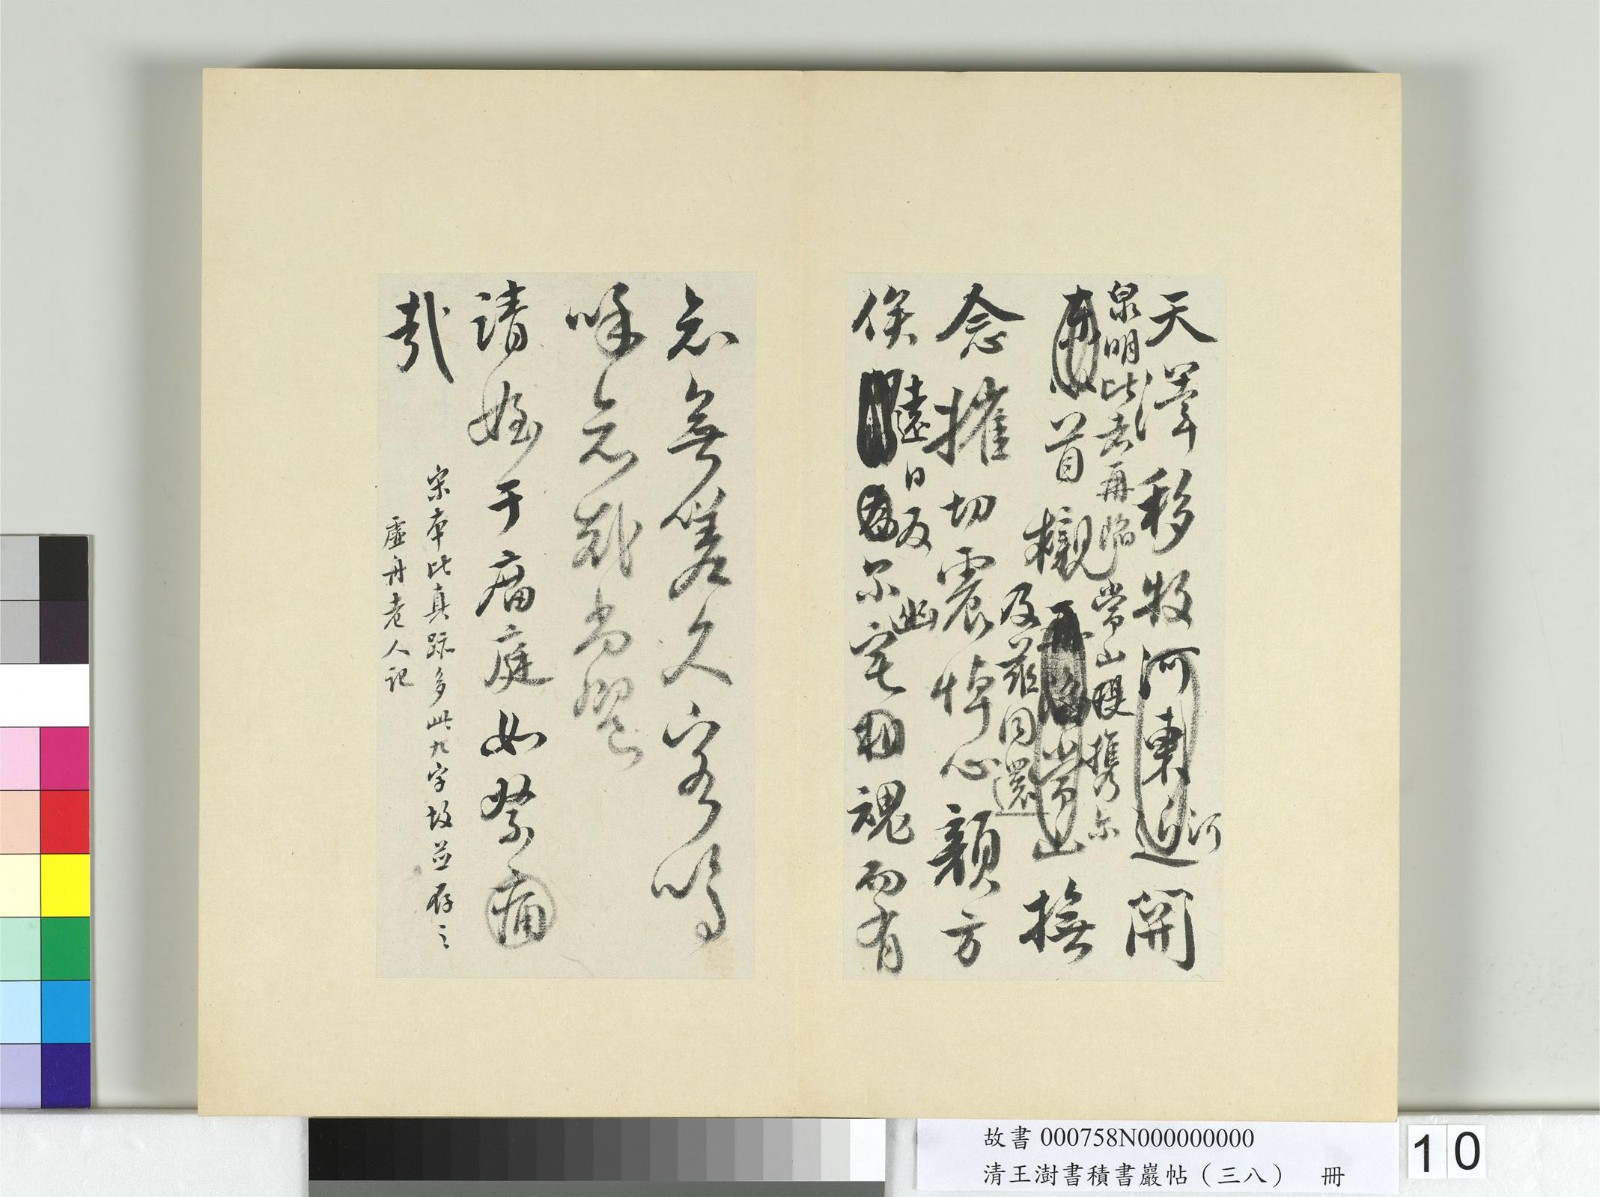 天澤移牧河東近河關
泉明比者再陷常山提攜爾
首櫬再陷常山撫
及茲同還
念摧切震悼心顏方
遠日
幽
俟爾宅相魂而有
知無嗟久客嗚
呼哀哉尚饗
請姪于癅庭如祭痛
哉
宋本比真跡多此九字故並存之
虛舟老人記
故書 000758N000000000
清王澍書積書巖帖（三八） 冊
10